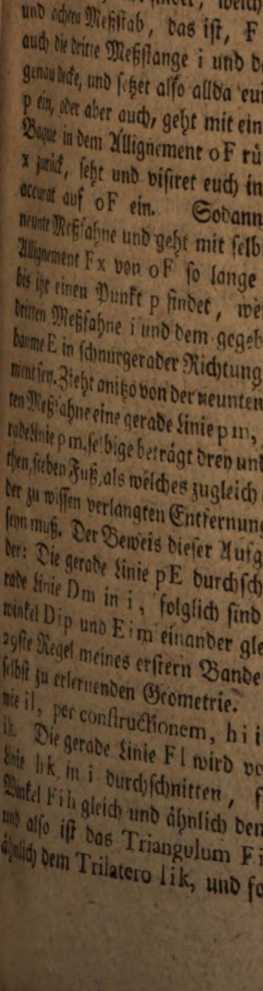 und achten Meßstab, das ist, F
auch die dritte Meßstange i und d
genau decke, und setzet also allda eu
p ein, oder aber auch, geht mit ein
Bague in dem Allignement o F rü
x zurück, seht und visiret euch in
accurat auf o F ein. Sodann
neunte Meßfahne und geht mit selb
Allignement F x von o F so lange
bis ihr einen Punkt p findet, we
dritten Meßfahne i und dem gegeb
baume E in schnurgerader Richtung
Zieht anitzo von der neunten
ten Meßfahne eine gerade Linie p m,
rade Linie p m, selbige beträgt drey un
sieben Fuß, als welches zugleich
der zu wissen verlangten Entfernung
seyn muß. Der Beweis dieser Aufg
der: Die gerade Linie p E durchsch
rade Linie D m in i, folglich sind
winkel D i p und E i m einander gle
29ste Regel meines erstern Bande
selbst zu erlernenden Geometrie.
nie i l, per constructionem, h i i
i k. Die gerade Linie F l wird vo
Linie h k in i durchschnitten, f
Winkel F i h gleich und ähnlich den
und also ist das Triangulum F i
ähnlich dem Trilatero l i k, und so